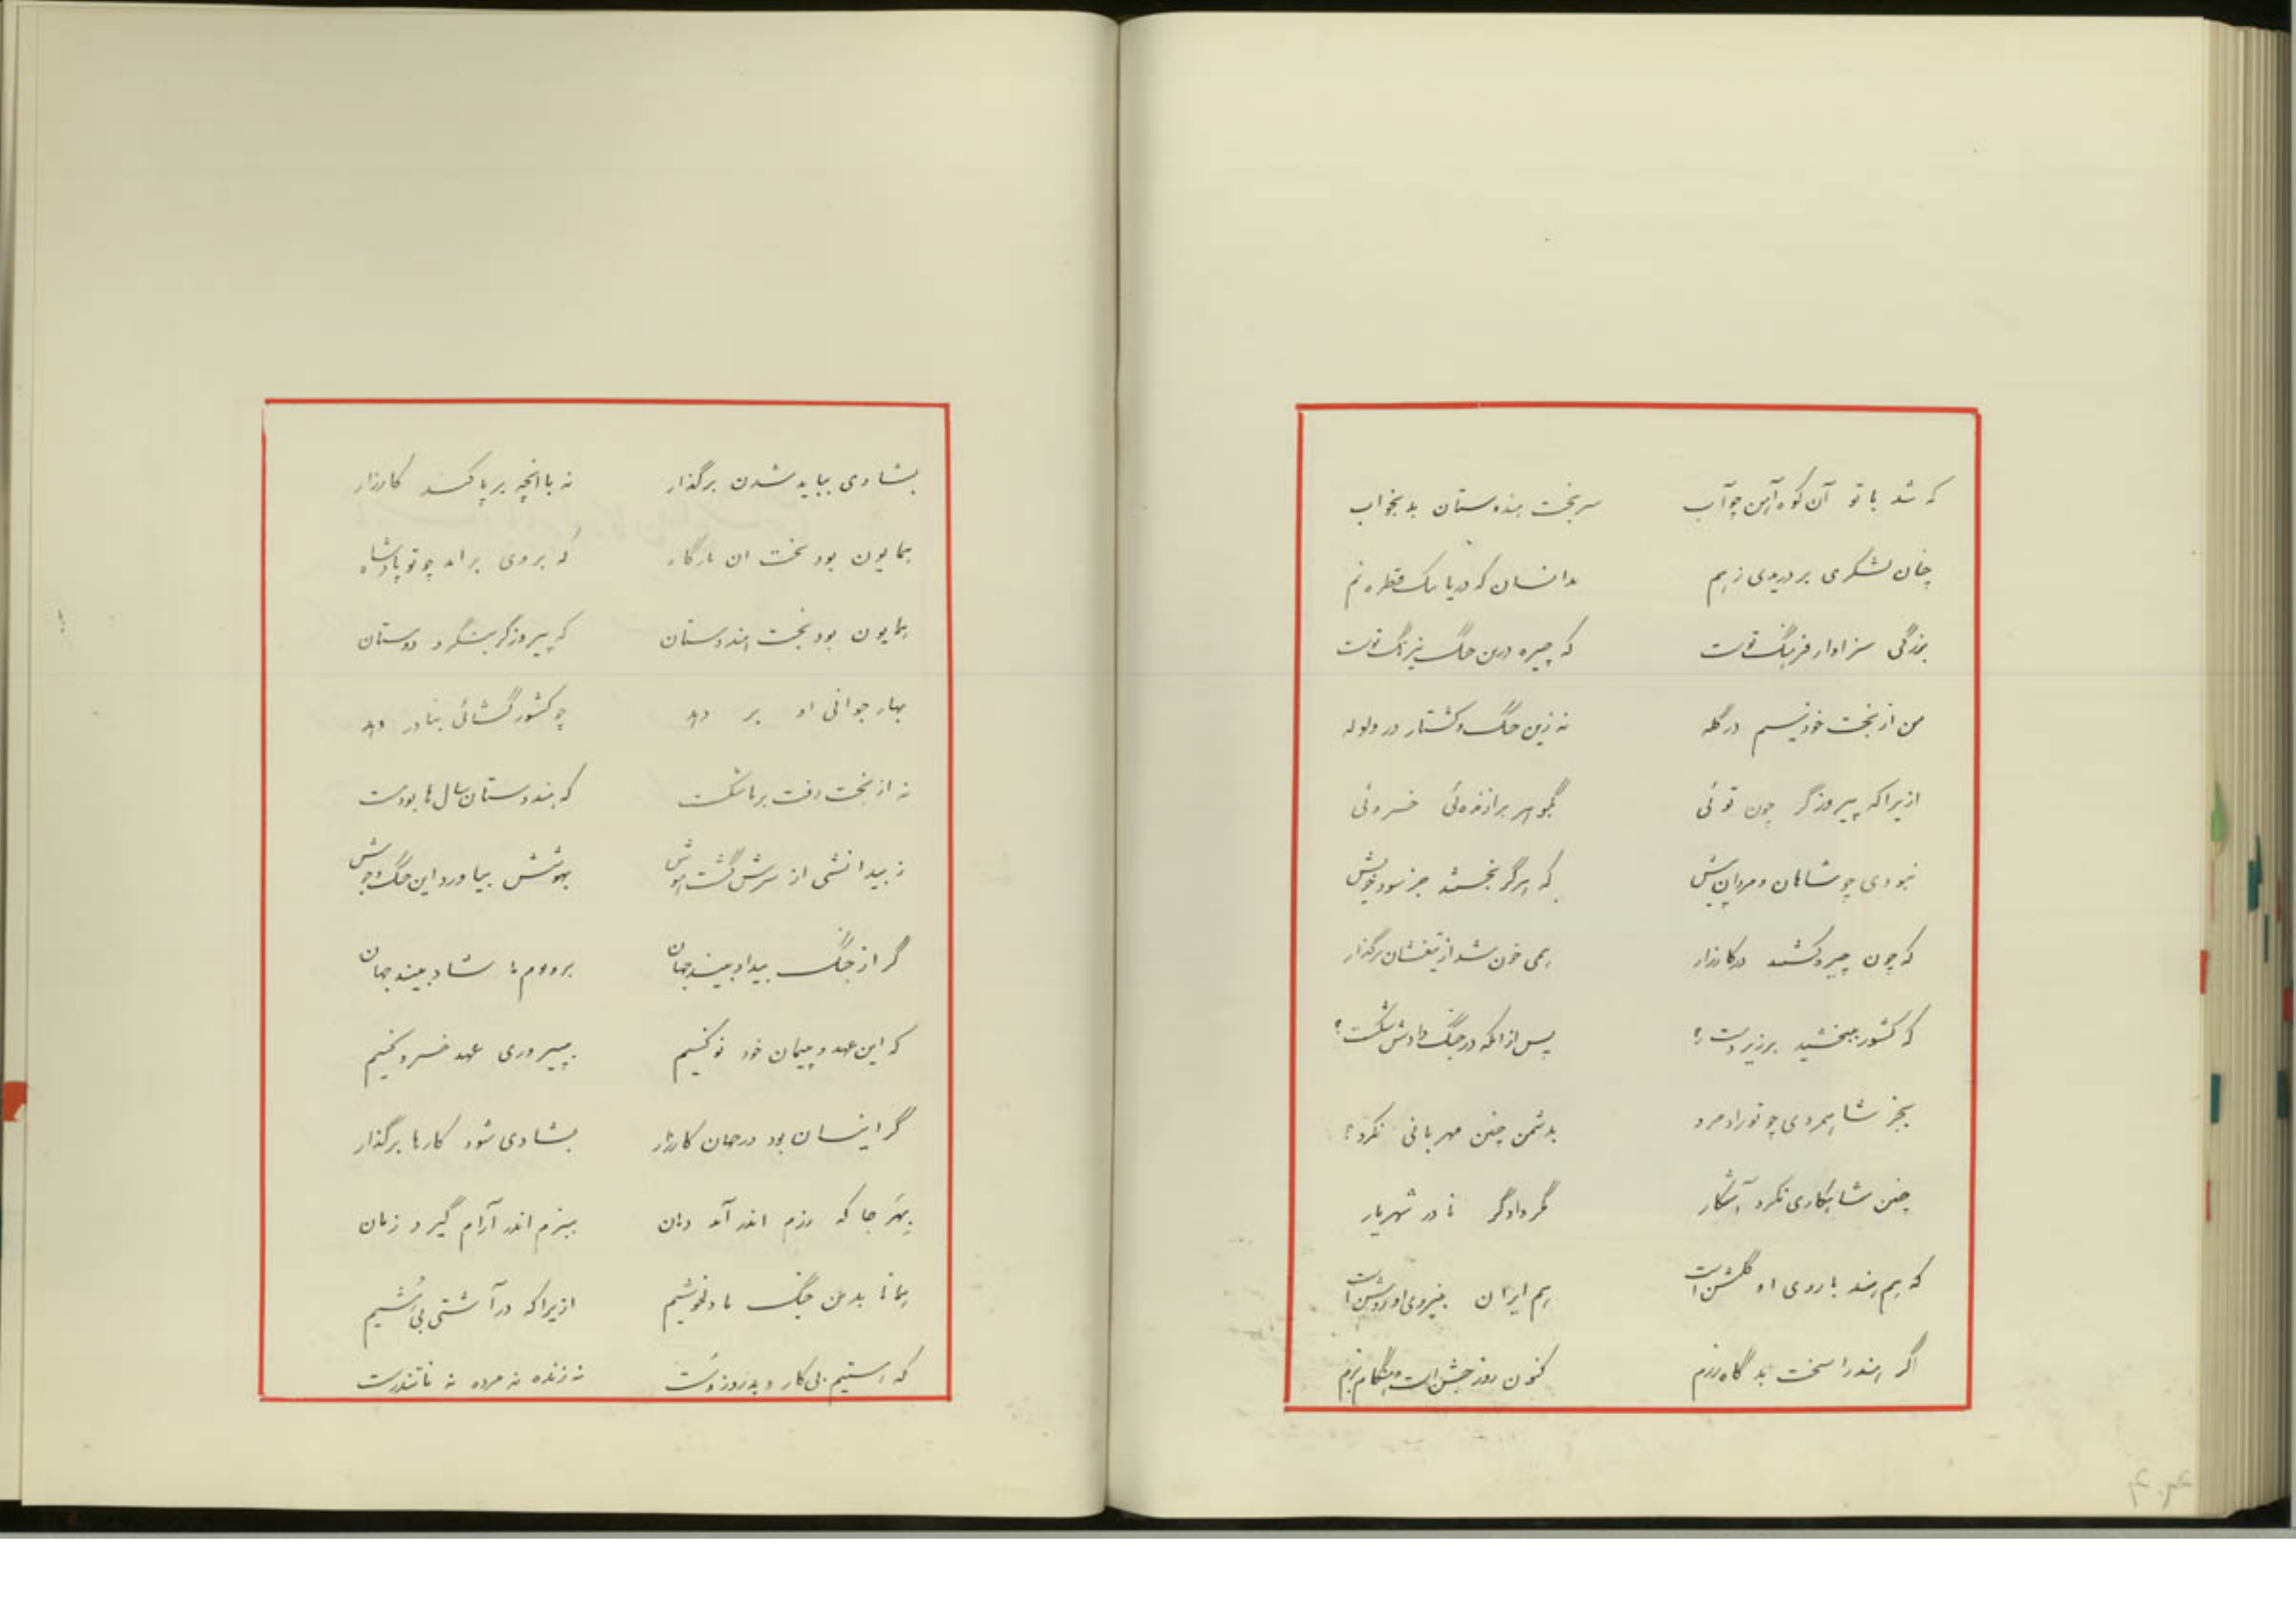 که شد با تو آن کوه آهن چو آب سر بخت هندوستان بد بخواب
چنان لشکری بر دریدی ز هم بدانسان که دریا یک قطره نم
بزرگی سزاوار فرهنگ تست که چیره درین جنگ نیرنگ تست
من از بخت خود نیستم در گله نه زین جنگ و کشتار در ولوله
ازیرا که پیروزگر چون توئی بگوهر برازنده‌ئی خسروئی
نبودی چو شاهان و مردان پیش که هرگز نجستند جز سود خویش
که چون چیره گشتند در کارزار همی خون شد از تیغشان برگذار
که کشور ببخشید بر زیردست؟ پس از انکه در جنگ دادش شکست؟
بجز شاهمردی چو تو رادمرد بدشمن چنین مهربانی نکرد؟
چنین شاهکاری نکرد آشکار مگر دادگر نادر شهریار
که هم هند با روی او گلشن است هم ایران بنیروی او روشن است
اگر هند را سخت بد گاه رزم کنون روز جشن است و هنگام بزم
بشادی بباید شدن برگذار نه با آنچه بر پا کند کارزار
همایون بود تخت آن بارگاه که بر وی براید چو تو پادشاه
همایون بود بخت هندوستان که پیروزگر بنگرد دوستان
بهار جوانی او بر دهد چو کشورگشائی بنادر دهد
نه از بخت رفت بر ما شکست که هندوستان سال‌ها بود مست
ز بیدانشی از سرش گشت هوش بهوشش بیاورد این جنگ و جوش
گر از جنگ بیداد بیند جهان بر و بوم ما شاد بیند جهان
که این عهد و پیمان خود نو کنیم بپیروزی عهد خسرو کنیم
گر اینسان بود در جهان کارزار بشادی شود کارها برگذار
بهر جا که رزم اندر آمد دمان ببزم اندر آرام گیرد زمان
همانا بدین جنگ ما دلخوشیم ازیرا که در آشتی بی‌هشیم
که هستیم بی‌کار و بد روز و سست نه زنده نه مرده نه ناتندرست